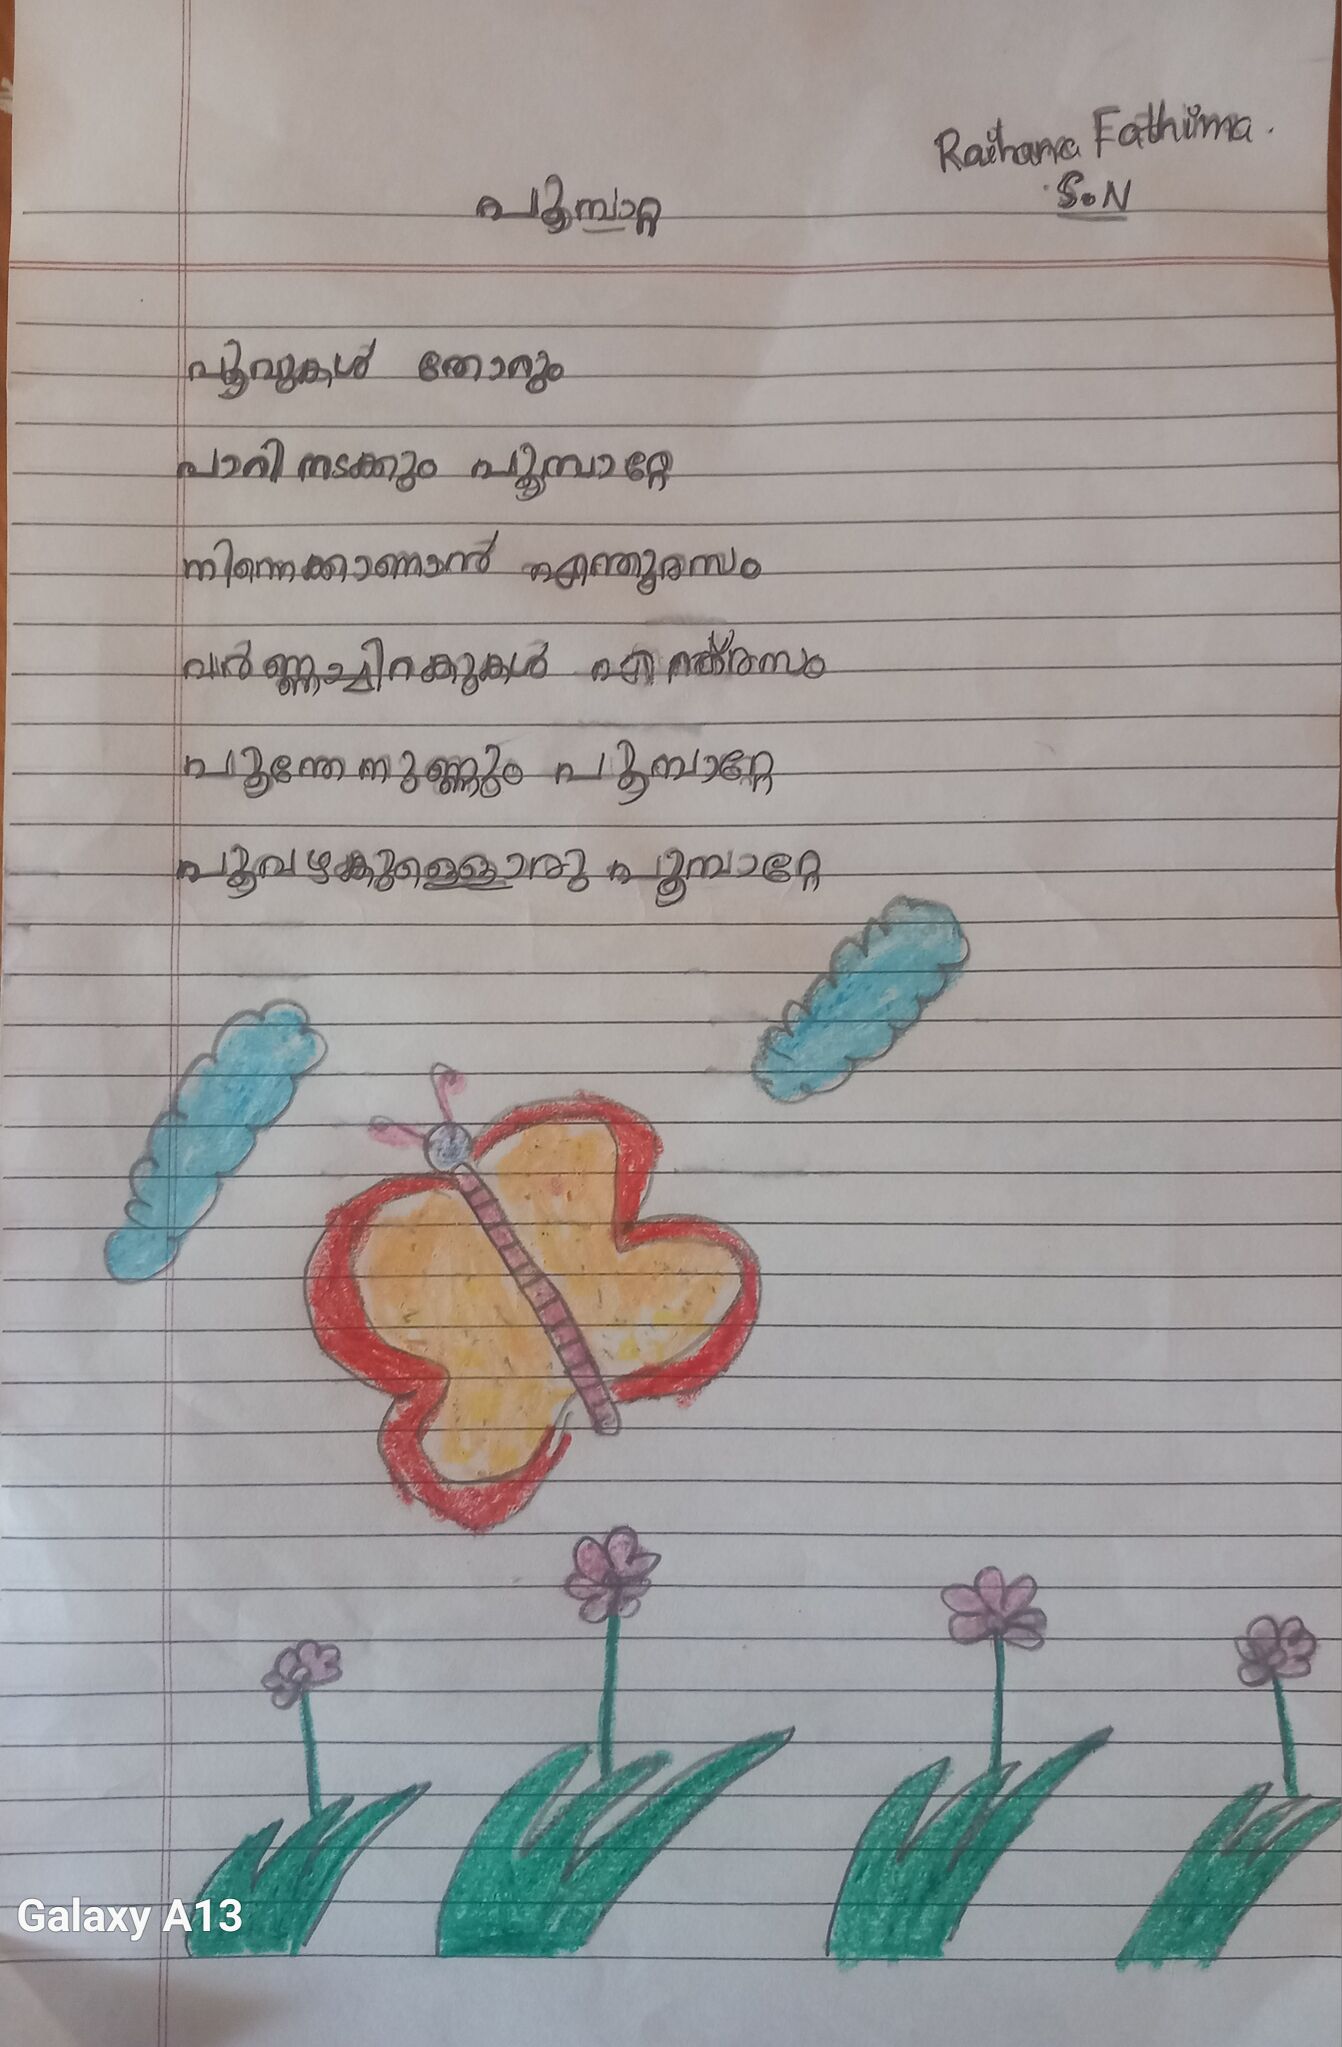 Raihana Fathima.
S.N
പൂമ്പാറ്റ
പൂവുകൾ തോറും
പാറി നടക്കും പൂമ്പാറ്റേ
നിന്നെക്കാണാൻ എന്തൂരസം
വർണ്ണച്ചിറകുകൾ
പൂന്തേനുണ്ണും പൂമ്പാറ്റേ
പൂവഴകുള്ളൊരു പൂമ്പാറ്റേ
Galaxy A13